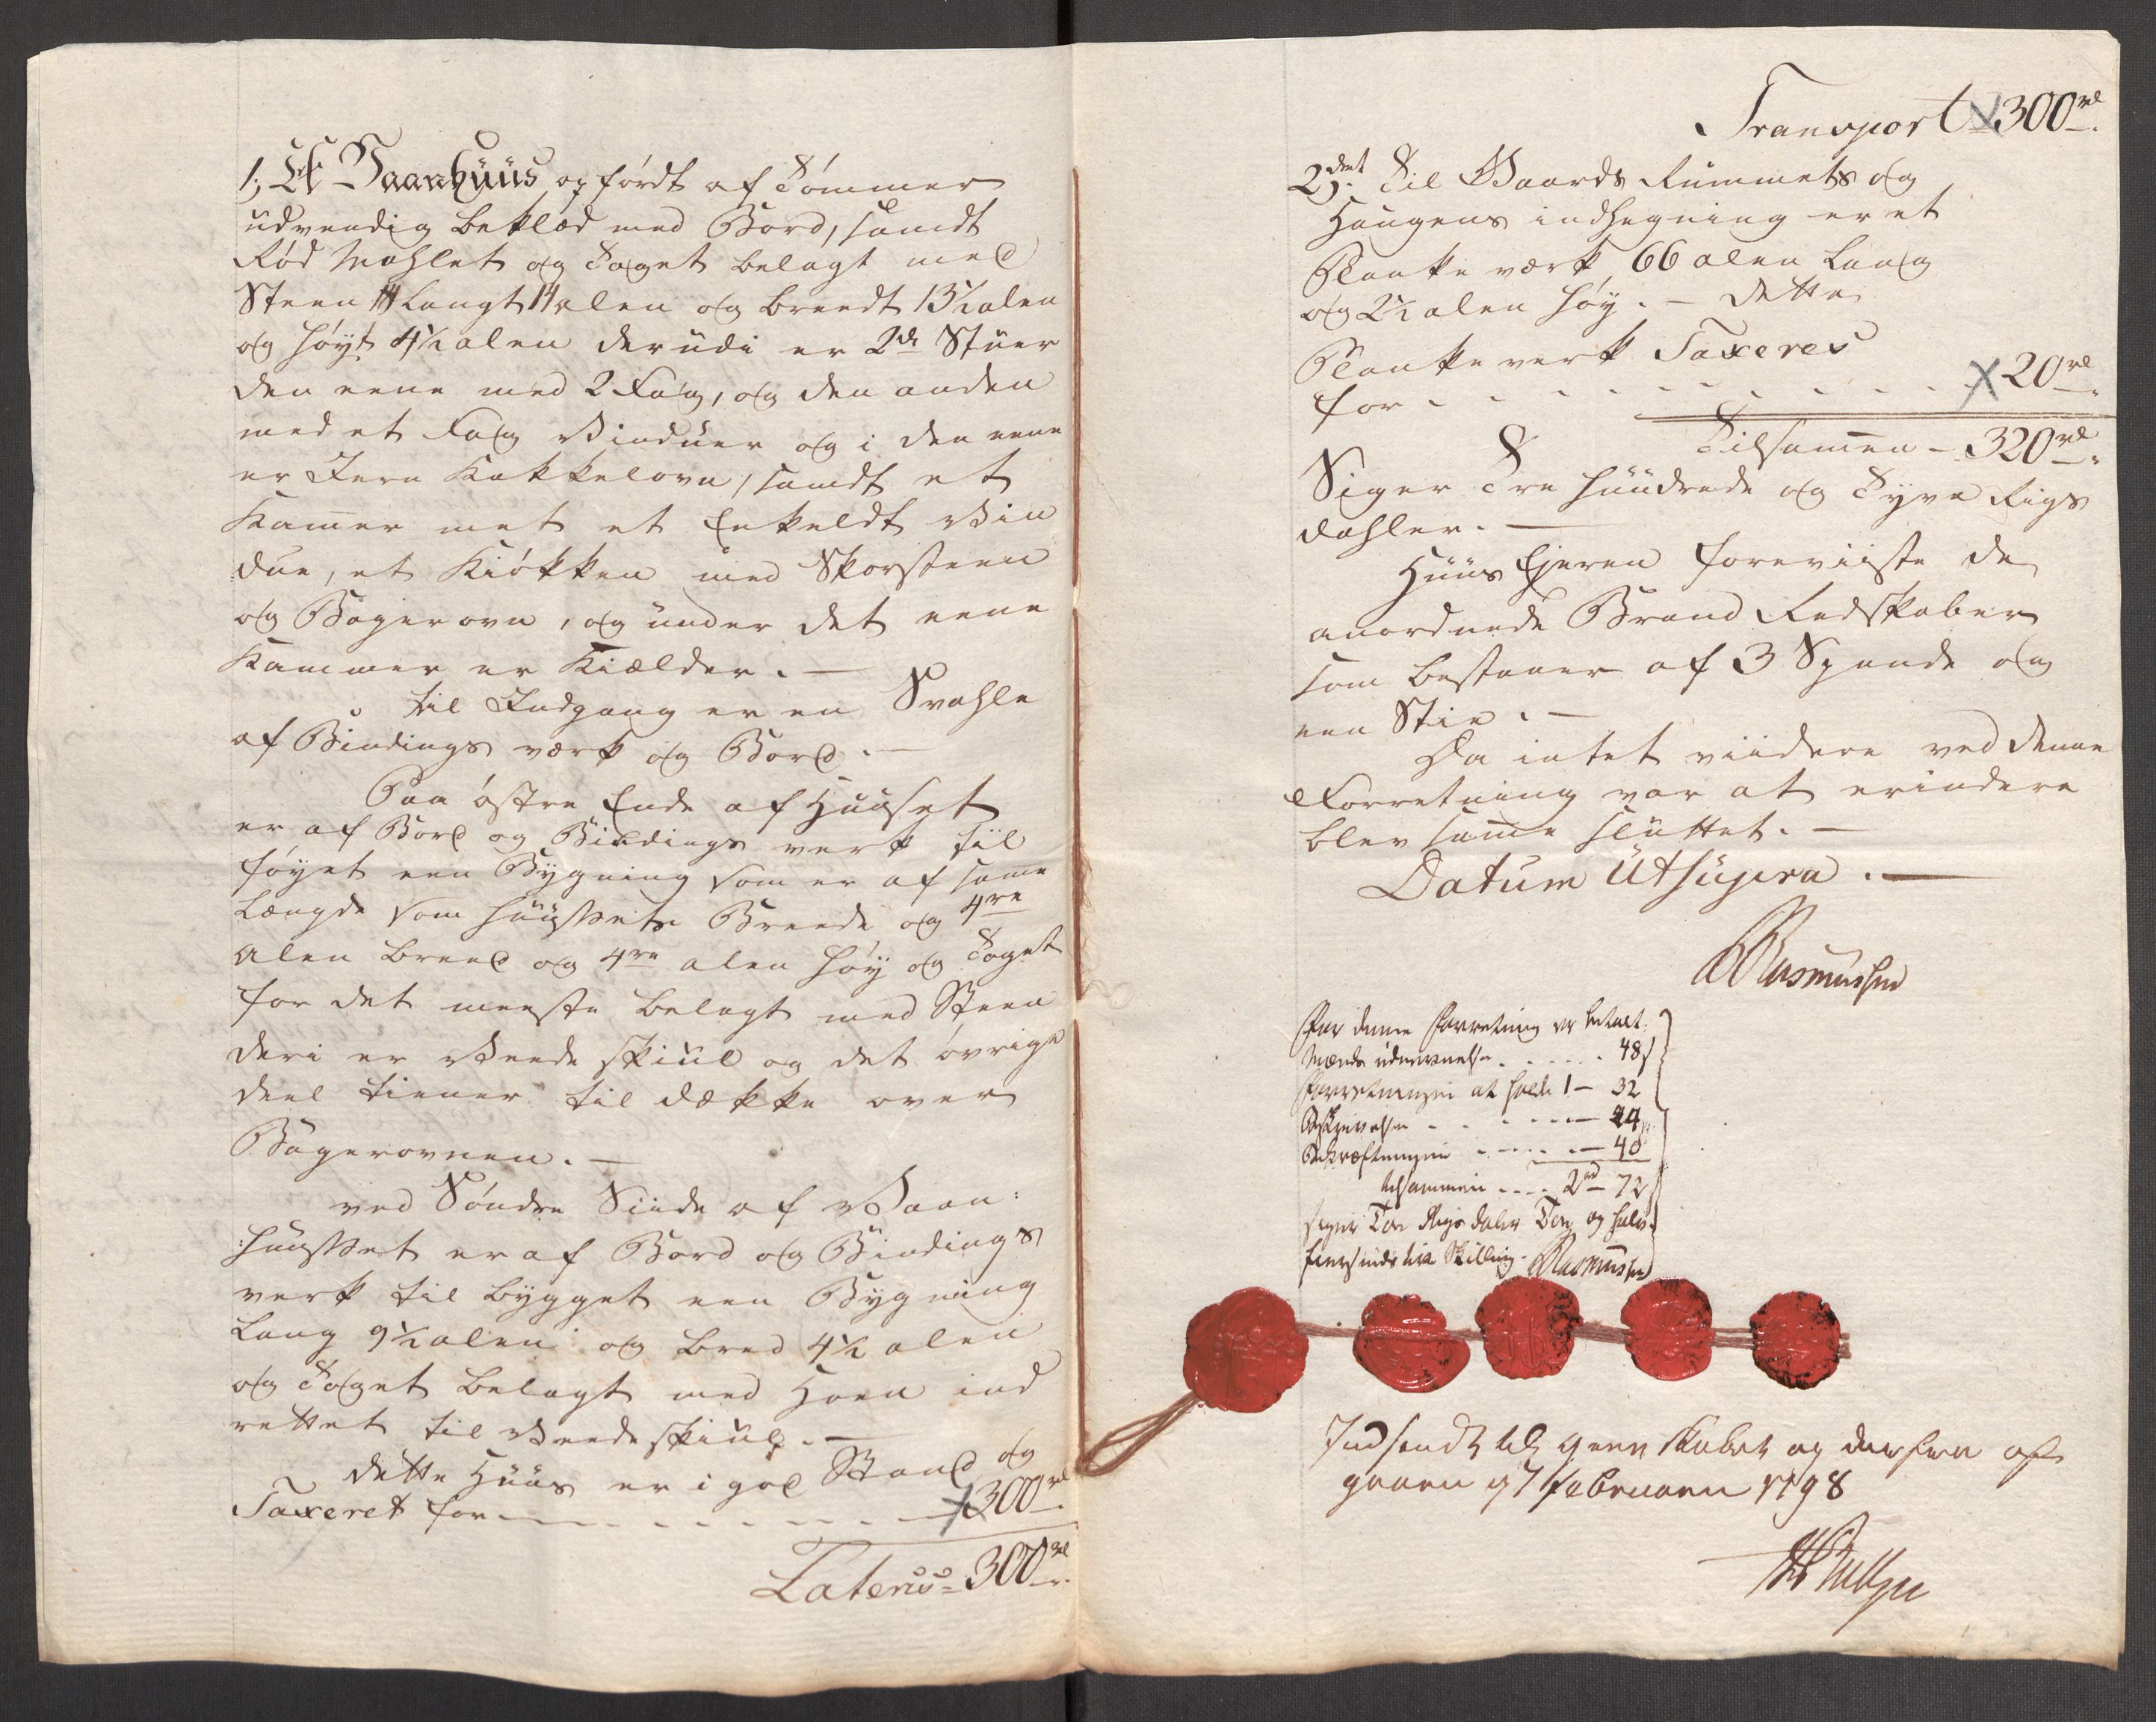 1; Et Vaanhuus opfördt af Tömmer
udvendig beklæd med Bord, samdt
Röd Mahlet og Taget belagt med
Steen Langt 14 alen og breedt 13½ alen
og höyt 4½ alen derudi er 2de Stuer
den eene med 2 Fag, og den anden
med et Fag Vinduer og i den eene
er Jern Kakkelovn, samdt et
Kammer met et Enkeldt Vin
due, et Kiökken med Skorsteen
og Bagerovn, og under det eene
Kammer er Kiælder. —
til Indgang er en Svahle
af Bindings værk og Bord. —
Paa östre Ende af Huuset
er af Bord og Bindings verk til
föyet een Bygning som er af samme
Længde som Huussets Breede og 4re
alen breed og 4re alen höy og Taget
for det meeste belagt med Steen
deri er Veede skiul og det övrige
deel tiener til dække over
Bagerovnen. —
ved Söndre Siide af Vaan:
:huusset er af Bord og Bindings
verk til bygget een Bygning
Lang 9½ alen og bred 4½ alen
og Taget belagt med Hoen ind
rettet til Veedeskiul. —
dette Huus er i god Stand og
Taxeret for — 300 rd.
Laterus = 300 rd.
Transport 300 rd.
2det Til Gaards Rummets og
Haugens indhegning er et
Planke værk 66 alen Lang
og 2½ alen höy. — dette
Planke verk Taxeres
for - - - - 20 rd.
Tilsammen - 320 rd.
Siger Tre hundrede og Tyve Rigs
dahler. —
Huus Ejeren foreviiste de
anordnede Brand Redskaber
som bestaaer af 3 Spande og
een Stie. —
Da intet viidere ved denne
Forretning var at erindere
blev samme sluttet. —
Datum Utsupra. —
Rasmussen
For denne Forretning er betalt:
Mænds udnevnelse - - - 48 s
Forretningen at holde 1 — 32
Beskrivelse - - - — 44
Bekræftningen - - - — 40
tilsammen - - - 2 rd — 72
siger Toe Rigsdaler Toe og halv-
fiersindstive Skilling. Rasmussen
Indsendt til general Skabet og derfra af
gaaen 97 Februarii 1798